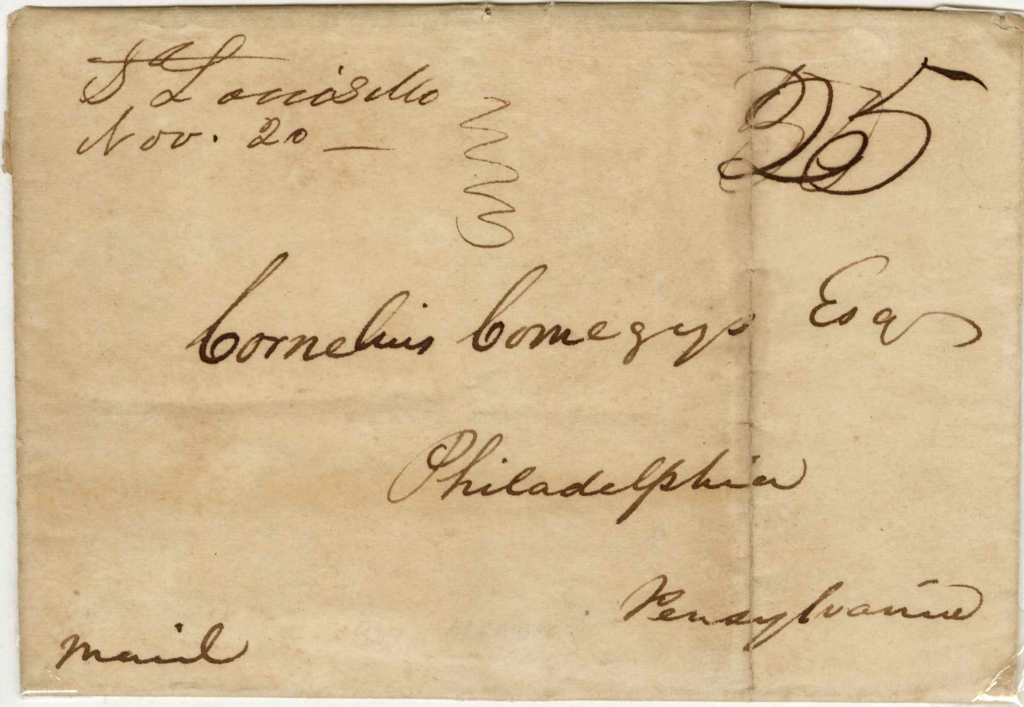 St Louis Mo
Nov. 20
25
Cornelius Comegys Esq
Philadelphia
Pensylvania
Mail